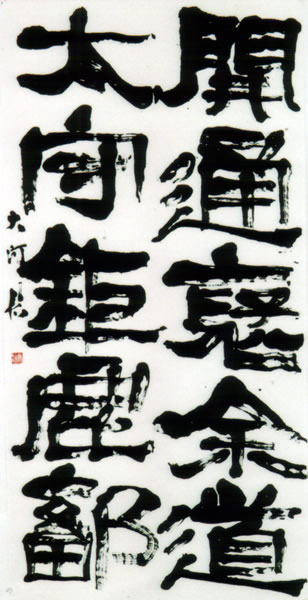 開通褒余道
太守鉅鹿鄐
大河